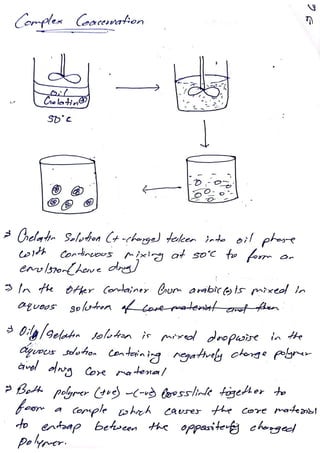 Complex Coacervation
Oil
Gelatin ⊕
50°c
⇒ Gelatin Solution (+ -charge) taken into oil phase
with continuous mixing at 50°C to form an
emulsion (have drug)
⇒ In the other container Gum arabic(⊖) is mixed in
aqueous solution of core material and then
⇒ Oil/gelatin solution is mixed dropwise in the
aqueous solution containing negatively charge polymer
and drug core material
⇒ Both polymer (+ve) -(-ve) crosslink together to
form a comple which causes the core material
to entrap between the oppositely charged
polymer.